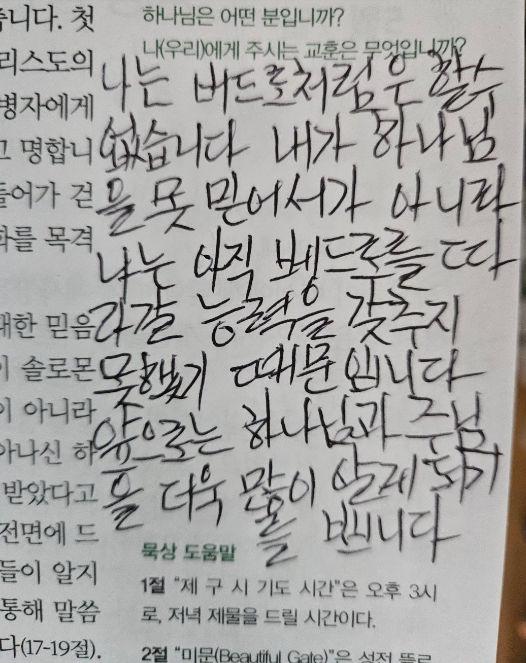 습니다. 첫
리스도의
병자에게
고 명합니
들어가 걷
화를 목격
대한 믿음
이 솔로몬
이 아니라
아나신 하
받았다고
전면에 드
들이 알지
통해 말씀
다(17-19절).
하나님은 어떤 분입니까?
나(우리)에게 주시는 교훈은 무엇입니까?
나는 버드로처럼은 할수
없습니다 내가 하나님
을 못 믿어서가 아니라
나는 아직 를 따
라갈 능력을 갖추지
못했기 때문 입니다
앞으로는 하나님과 주님
을 더욱 많이 알게 되기
를 빕니다
묵상 도움말
1절 “제 구 시 기도 시간”은 오후 3시
로, 저녁 제물을 드릴 시간이다.
2절 “미문(Beautiful Gate)”은 성전 뜰로